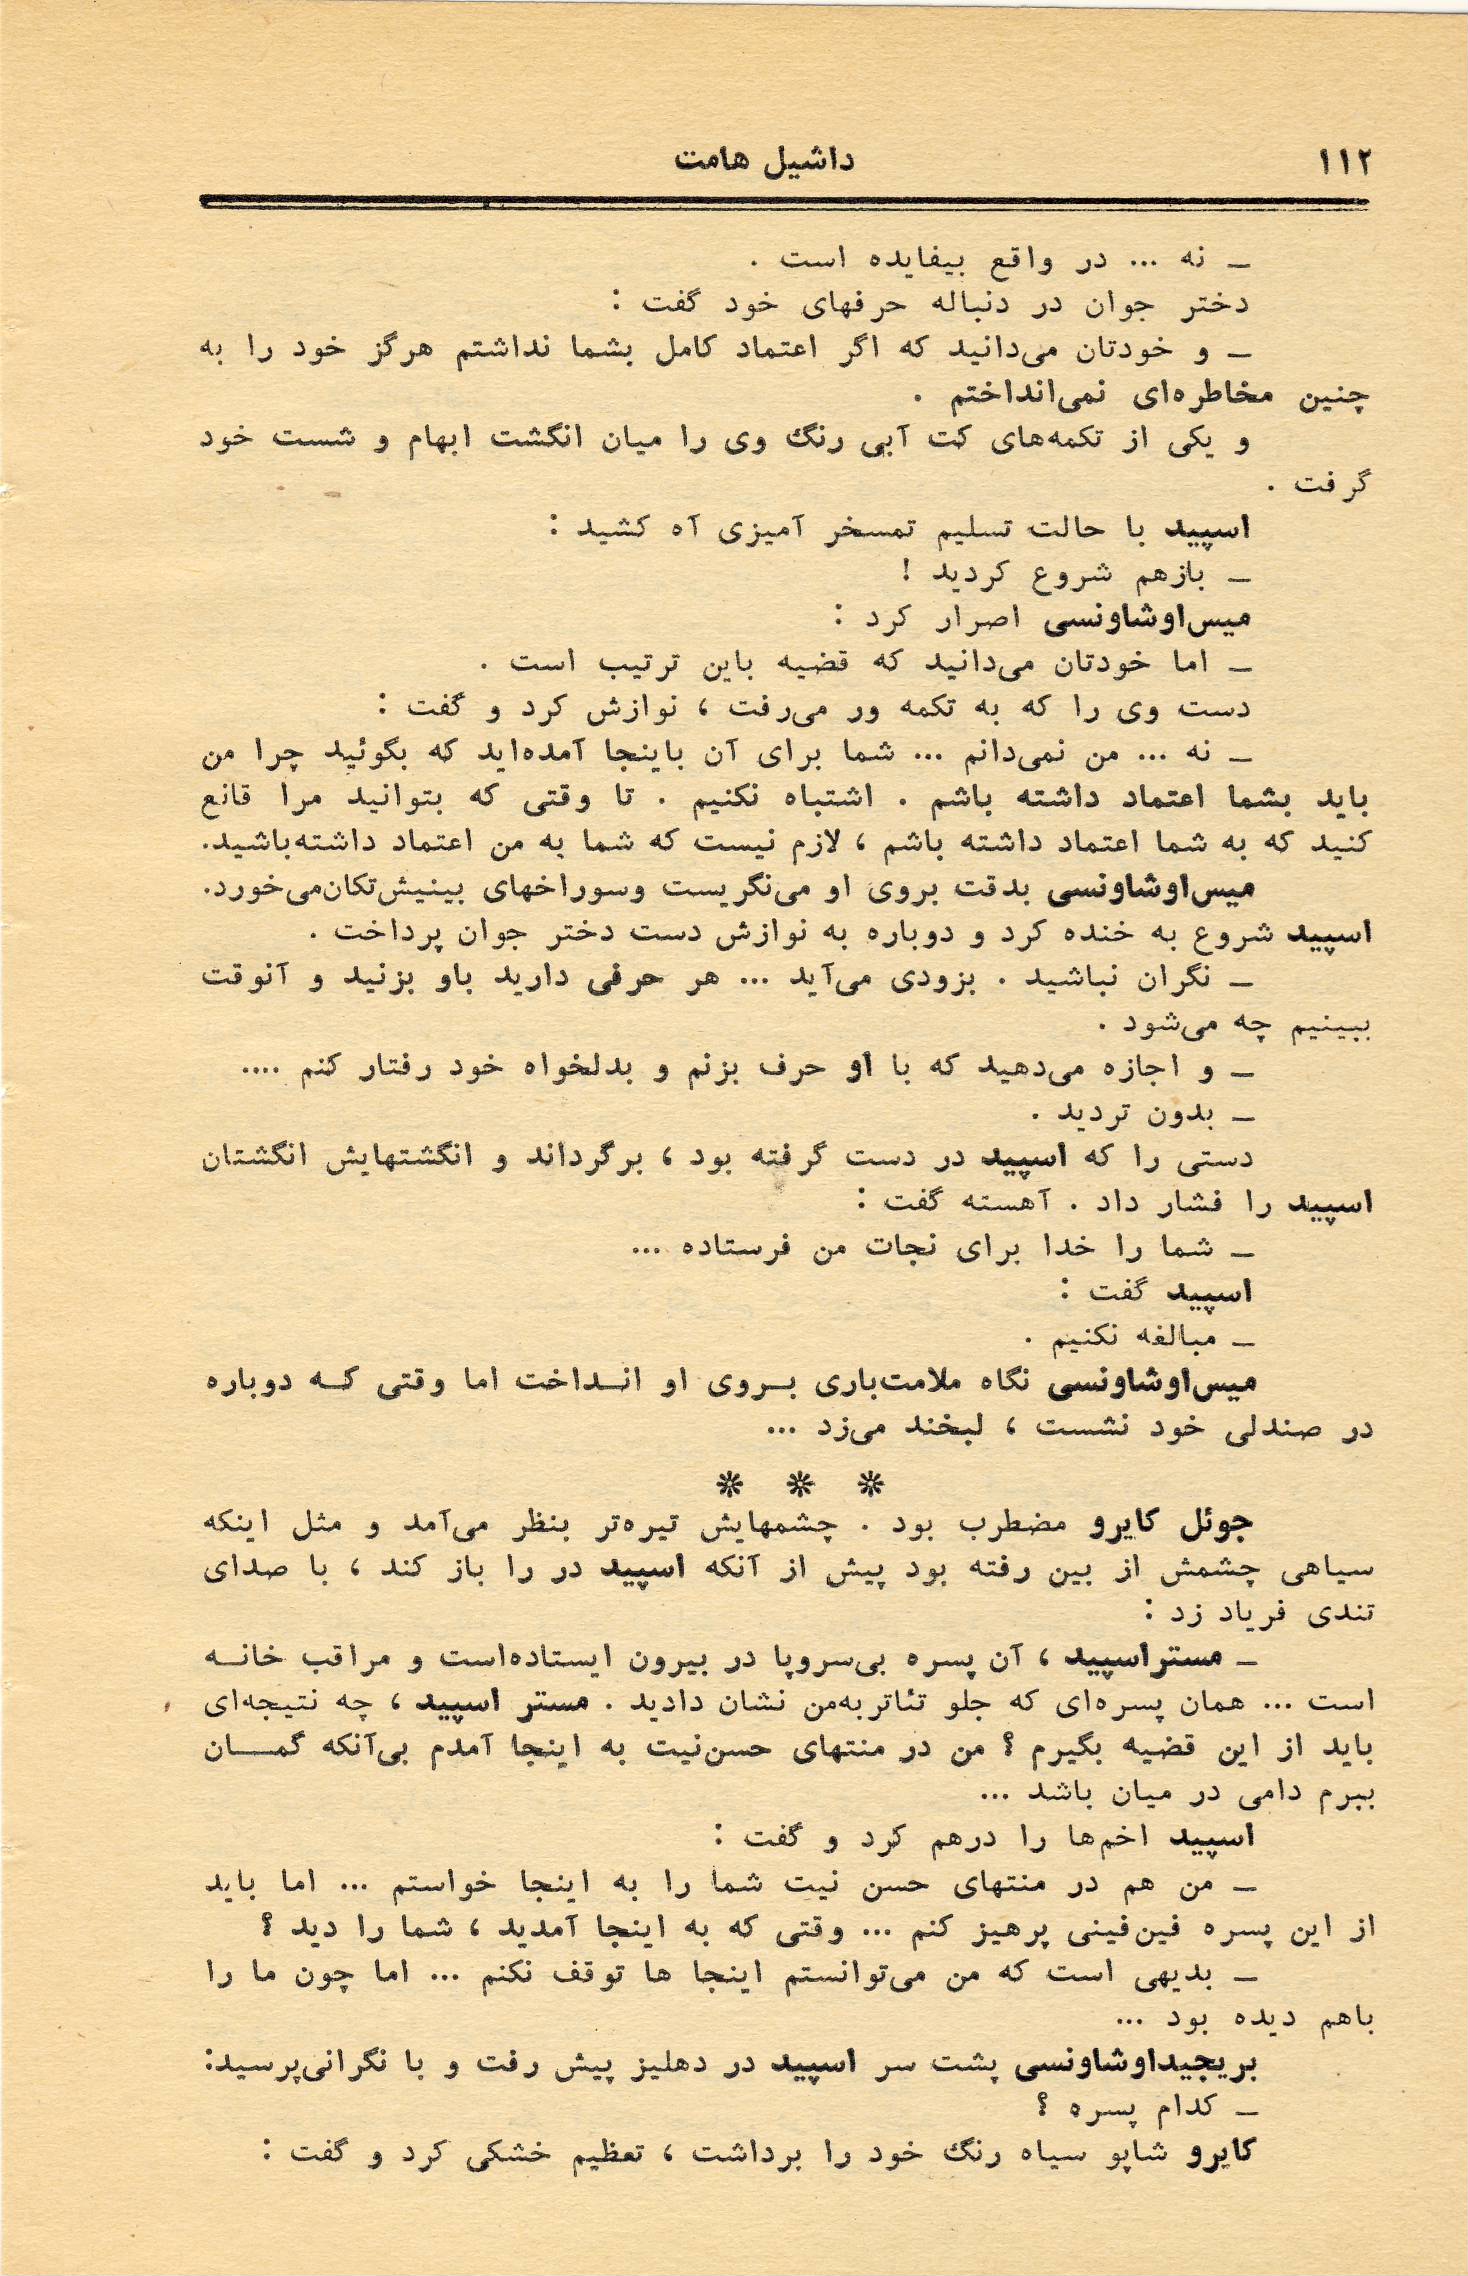 ۱۱۲
داشیل هامت
ـ نه ... در واقع بیفایده است .
دختر جوان در دنباله حرفهای خود گفت :
ـ و خودتان می‌دانید که اگر اعتماد کامل بشما نداشتم هرگز خود را به
چنین مخاطره‌ای نمی‌انداختم .
و یکی از تکمه‌های کت آبی رنگ وی را میان انگشت ابهام و شست خود
گرفت .
اسپید با حالت تسلیم تمسخر آمیزی آه کشید :
ـ بازهم شروع کردید !
میس‌اوشاونسی اصرار کرد :
ـ اما خودتان می‌دانید که قضیه باین ترتیب است .
دست وی را که به تکمه ور می‌رفت ، نوازش کرد و گفت :
ـ نه ... من نمی‌دانم ... شما برای آن باینجا آمده‌اید که بگوئید چرا من
باید بشما اعتماد داشته باشم . اشتباه نکنیم . تا وقتی که بتوانید مرا قانع
کنید که به شما اعتماد داشته باشم ، لازم نیست که شما به من اعتماد داشته‌باشید.
میس‌اوشاونسی بدقت بروی او می‌نگریست وسوراخهای بینیش‌تکان‌می‌خورد.
اسپید شروع به خنده کرد و دوباره به نوازش دست دختر جوان پرداخت .
ـ نگران نباشید . بزودی می‌آید ... هر حرفی دارید باو بزنید و آنوقت
ببینیم چه می‌شود .
ـ و اجازه می‌دهید که با او حرف بزنم و بدلخواه خود رفتار کنم ....
ـ بدون تردید .
دستی را که اسپید در دست گرفته بود ، برگرداند و انگشتهایش انگشتان
اسپید را فشار داد . آهسته گفت :
ـ شما را خدا برای نجات من فرستاده ...
اسپید گفت :
ـ مبالغه نکنیم .
میس‌اوشاونسی نگاه ملامت‌باری بـروی او انـداخت اما وقتی کـه دوباره
در صندلی خود نشست ، لبخند می‌زد ...
❊ ❊ ❊
جوئل کایرو مضطرب بود . چشمهایش تیره‌تر بنظر می‌آمد و مثل اینکه
سیاهی چشمش از بین رفته بود پیش از آنکه اسپید در را باز کند ، با صدای
تندی فریاد زد :
ـ مستراسپید ، آن پسره بی‌سروپا در بیرون ایستاده‌است و مراقب خانـه
است ... همان پسره‌ای که جلو تئاتربه‌من نشان دادید . مستر اسپید ، چه نتیجه‌ای
باید از این قضیه بگیرم ؟ من در منتهای حسن‌نیت به اینجا آمدم بی‌آنکه گمـان
ببرم دامی در میان باشد ...
اسپید اخم‌ها را درهم کرد و گفت :
ـ من هم در منتهای حسن نیت شما را به اینجا خواستم ... اما باید
از این پسره فین‌فینی پرهیز کنم ... وقتی که به اینجا آمدید ، شما را دید ؟
ـ بدیهی است که من می‌توانستم اینجا ها توقف نکنم ... اما چون ما را
باهم دیده بود ...
بریجیداوشاونسی پشت سر اسپید در دهلیز پیش رفت و با نگرانی‌پرسید:
ـ کدام پسره ؟
کایرو شاپو سیاه رنگ خود را برداشت ، تعظیم خشکی کرد و گفت :